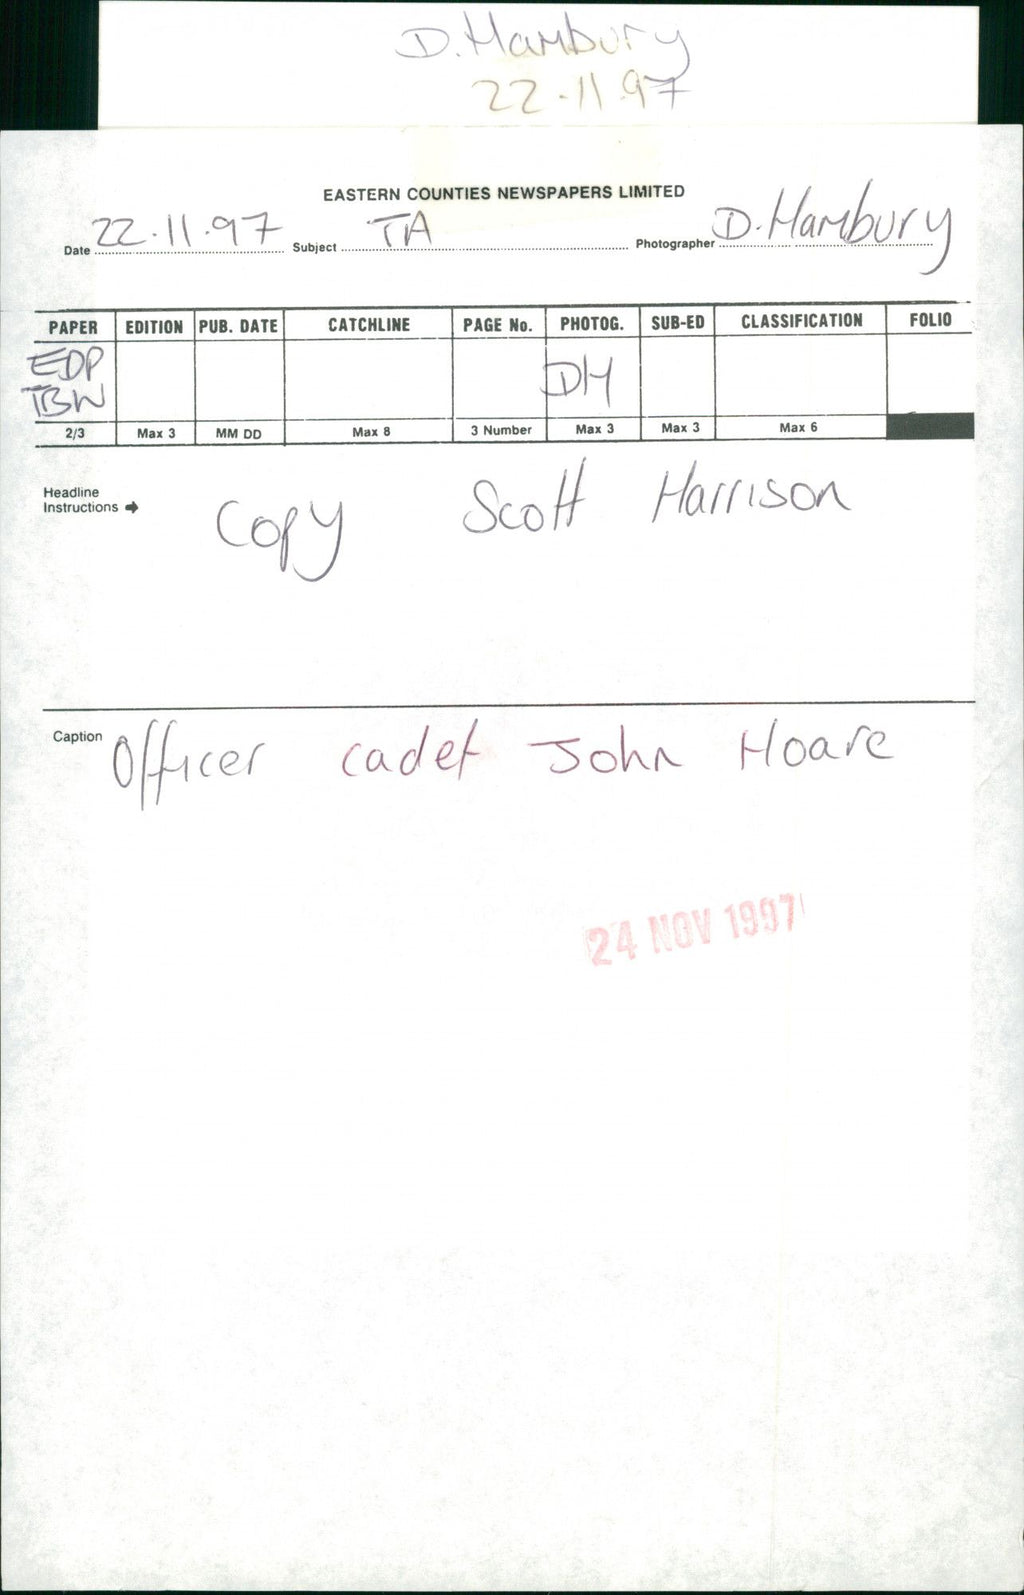 D. Hambury
22.11.97
EASTERN COUNTIES NEWSPAPERS LIMITED
Date 22.11.97 Subject TA Photographer D. Hambury
PAPER EDITION PUB. DATE CATCHLINE PAGE No. PHOTOG. SUB-ED CLASSIFICATION FOLIO
EDP DH
TBW
2/3 Max 3 MM DD Max 8 3 Number Max 3 Max 3 Max 6
Headline
Instructions ➔ Copy Scott Harrison
Caption Officer cadet John Hoare
24 NOV 1997